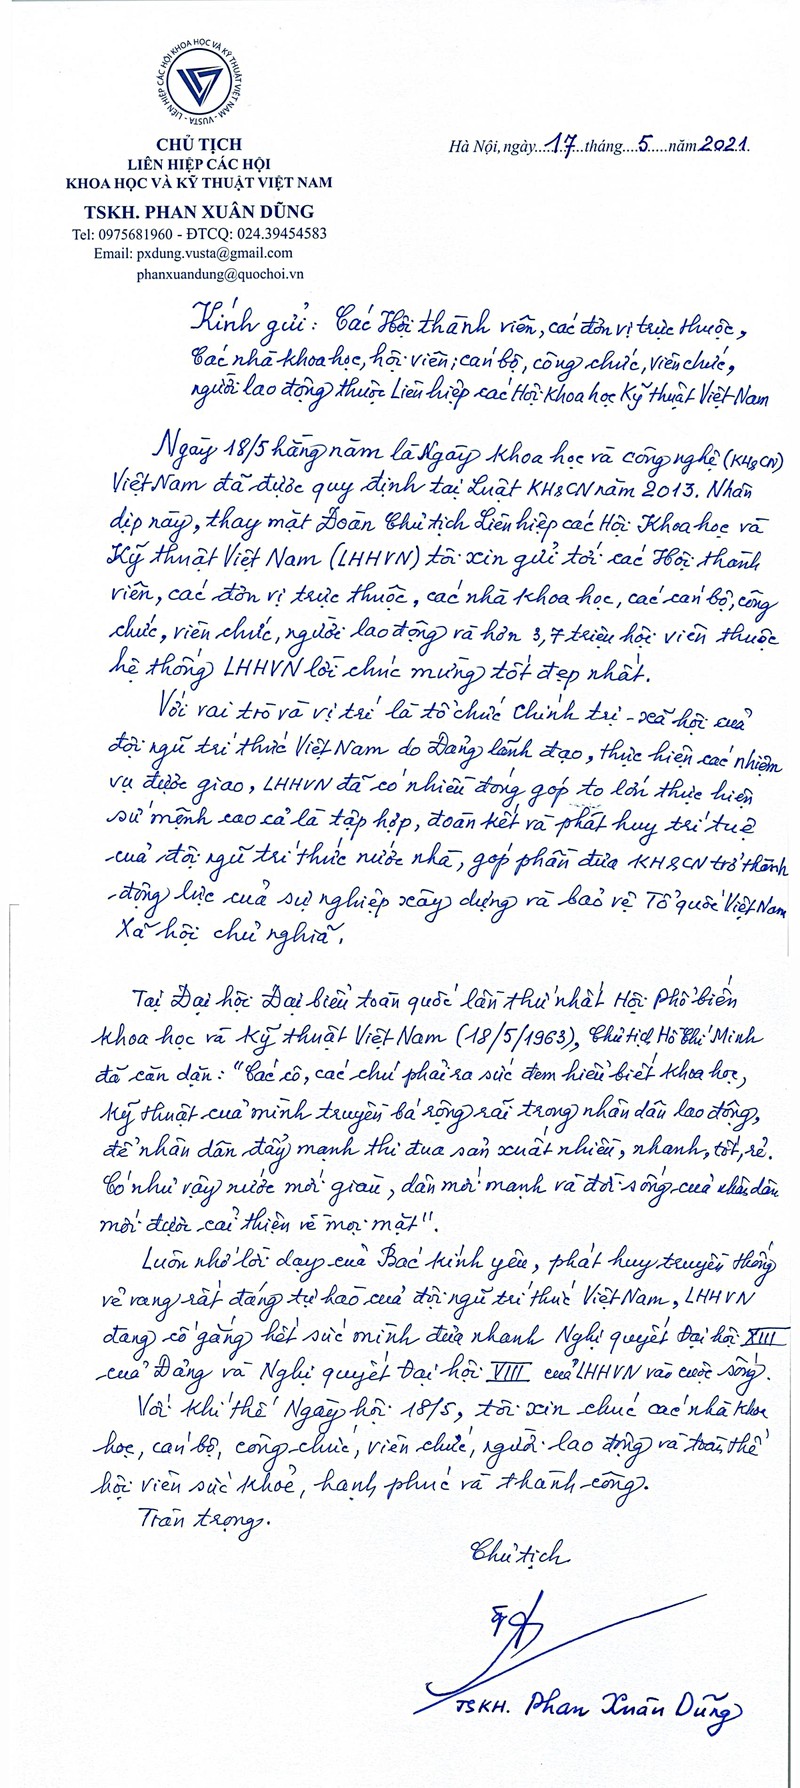 LIÊN HIỆP CÁC HỘI KHOA HỌC VÀ KỸ THUẬT VIỆT NAM - VUSTA
CHỦ TỊCH
LIÊN HIỆP CÁC HỘI
KHOA HỌC VÀ KỸ THUẬT VIỆT NAM
TSKH. PHAN XUÂN DŨNG
Tel: 0975681960 - ĐTCQ: 024.39454583
Email: pxdung.vusta@gmail.com
phanxuandung@quochoi.vn
Hà Nội, ngày....17...tháng....5.....năm 2021.
Kính gửi: Các Hội thành viên, các đơn vị trực thuộc,
Các nhà khoa học, hội viên; cán bộ, công chức, viên chức,
người lao động thuộc Liên hiệp các Hội Khoa học Kỹ thuật Việt Nam
Ngày 18/5 hằng năm là Ngày khoa học và công nghệ (KH&CN)
Việt Nam đã được quy định tại Luật KH&CN năm 2013. Nhân
dịp này, thay mặt Đoàn Chủ tịch Liên hiệp các Hội Khoa học và
Kỹ thuật Việt Nam (LHHVN) tôi xin gửi tới các Hội thành
viên, các đơn vị trực thuộc, các nhà khoa học, các cán bộ, công
chức, viên chức, người lao động và hơn 3,7 triệu hội viên thuộc
hệ thống LHHVN lời chúc mừng tốt đẹp nhất.
Với vai trò và vị trí là tổ chức chính trị - xã hội của
đội ngũ trí thức Việt Nam do Đảng lãnh đạo, thực hiện các nhiệm
vụ được giao, LHHVN đã có nhiều đóng góp to lớn thực hiện
sứ mệnh cao cả là tập hợp, đoàn kết và phát huy trí tuệ
của đội ngũ trí thức nước nhà, góp phần đưa KH&CN trở thành
động lực của sự nghiệp xây dựng và bảo vệ Tổ quốc Việt Nam
Xã hội chủ nghĩa.
Tại Đại hội Đại biểu toàn quốc lần thứ nhất Hội Phổ biến
khoa học và Kỹ thuật Việt Nam (18/5/1963), Chủ tịch Hồ Chí Minh
đã căn dặn: "Các cô, các chú phải ra sức đem hiểu biết khoa học,
kỹ thuật của mình truyền bá rộng rãi trong nhân dân lao động,
để nhân dân đẩy mạnh thi đua sản xuất nhiều, nhanh, tốt, rẻ.
Có như vậy nước mới giàu, dân mới mạnh và đời sống của nhân dân
mới được cải thiện về mọi mặt".
Luôn nhớ lời dạy của Bác kính yêu, phát huy truyền thống
vẻ vang rất đáng tự hào của đội ngũ trí thức Việt Nam, LHHVN
đang cố gắng hết sức mình đưa nhanh Nghị quyết Đại hội XIII
của Đảng và Nghị quyết Đại hội VIII của LHHVN vào cuộc sống.
Với khí thế Ngày hội 18/5, tôi xin chúc các nhà khoa
học, cán bộ, công chức, viên chức, người lao động và toàn thể
hội viên sức khoẻ, hạnh phúc và thành công.
Trân trọng.
Chủ tịch
TSKH. Phan Xuân Dũng